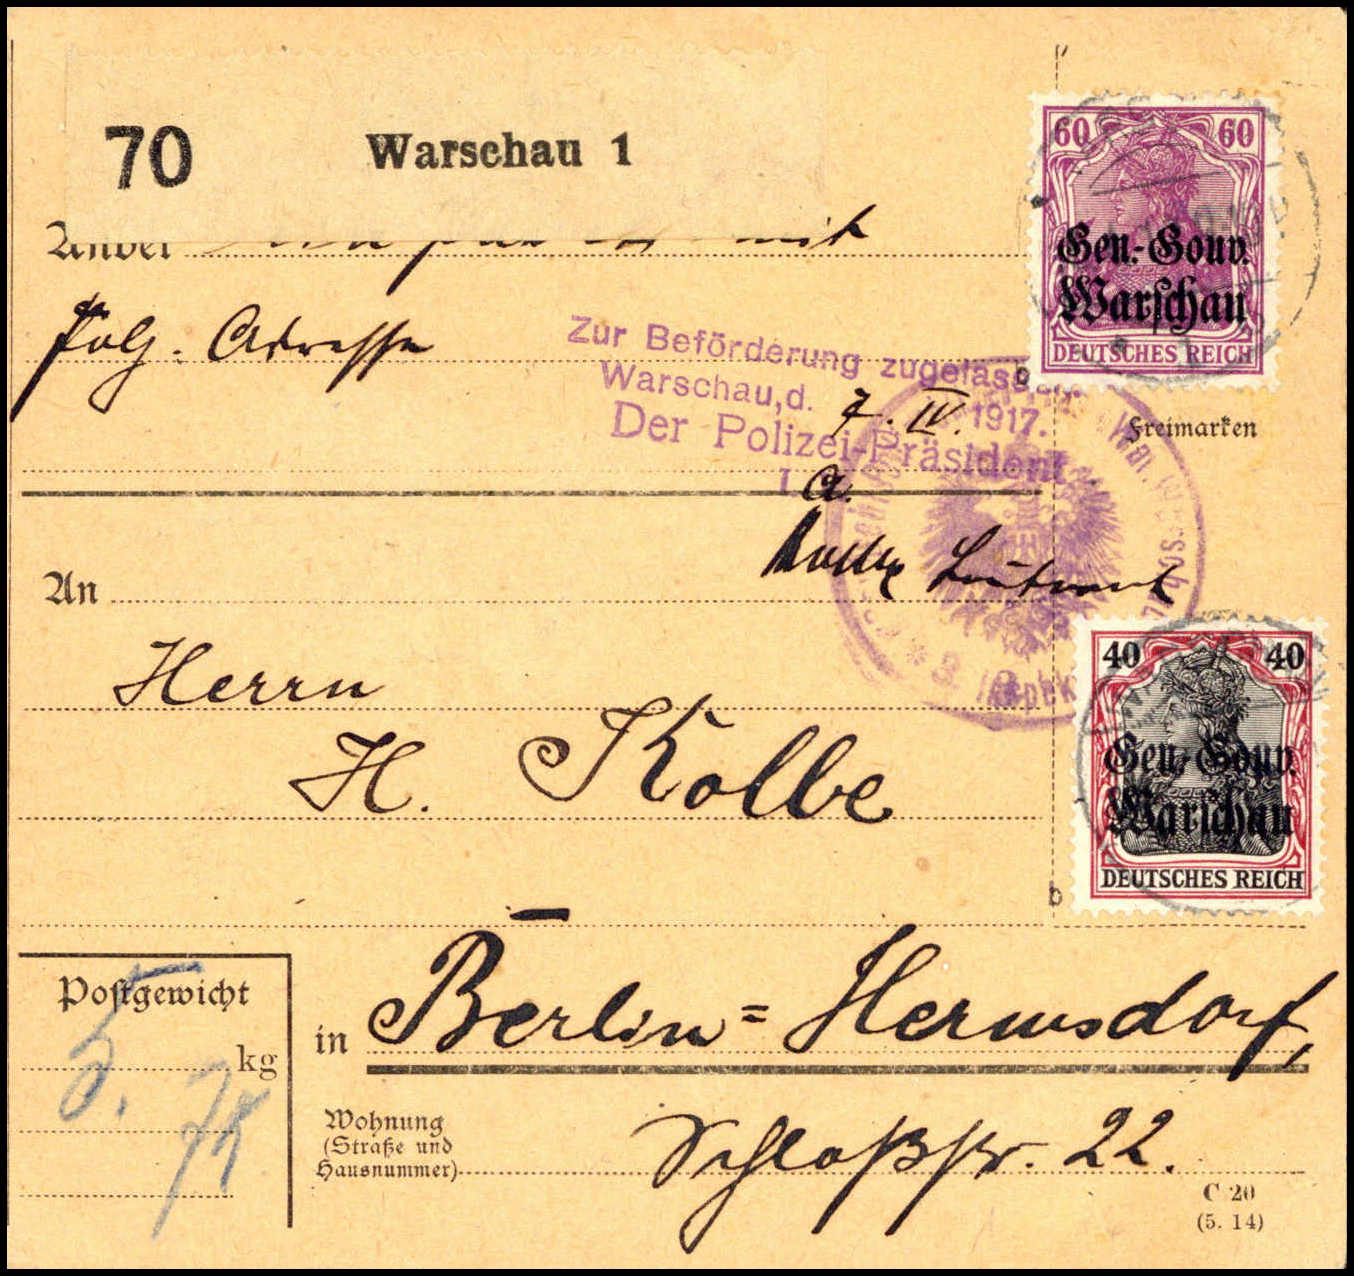 70 Warschau 1
60 60
Gen.-Gouv.
Warschau
DEUTSCHES REICH
Anbei mit
folg. Adresse
Zur Beförderung zugelassen.
Warschau, d. 7. IV. 1917.
Der Polizei-Präsident
I. A.
Leutnant
Freimarken
An
Herrn
H. Kolbe
40 40
Gen.-Gouv.
Warschau
DEUTSCHES REICH
b
b
Postgewicht
5. kg
in Berlin=Hermsdorf,
Wohnung
(Straße und
Hausnummer)
Schloßstr. 22.
C 20
(5. 14)